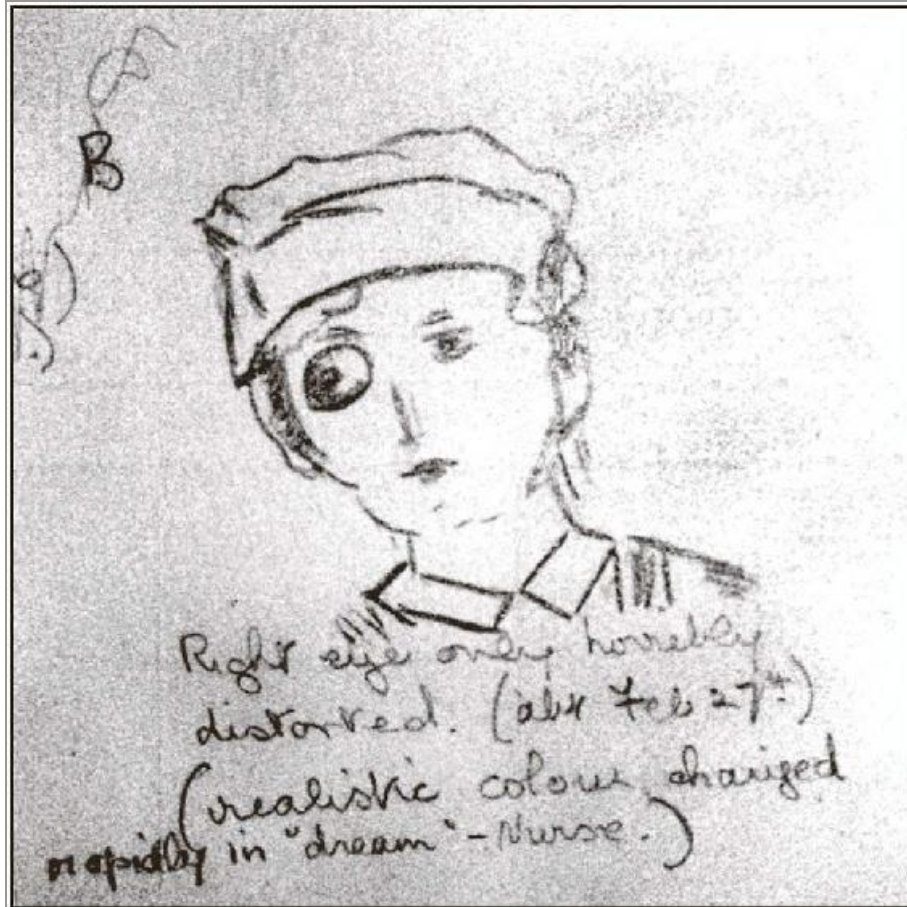 B
Right eye only horribly
distorted. (abt Feb 27th)
(realistic colour changed
rapidly in "dream" - Nurse.)